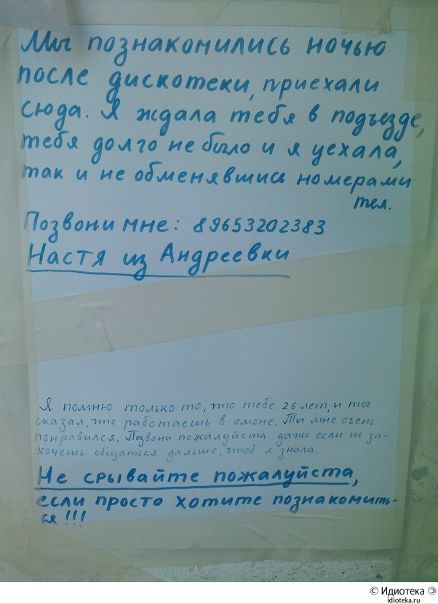 Мы познакомились ночью
после дискотеки, приехали
сюда. Я ждала тебя в подъезде,
тебя долго не было и я уехала,
так и не обменявшись номерами
тел.
Позвони мне: 89653202383
Настя из Андреевки
Я помню только то, что тебе 26 лет, и ты
сказал, что работаешь в омоне. Ты мне очень
понравился. Позвони пожалуйста даже если не за-
хочешь общатся дальше, чтоб я знала.
Не срывайте пожалуйста,
если просто хотите познакомить-
ся!!!
© Идиотека Э
idioteka.ru